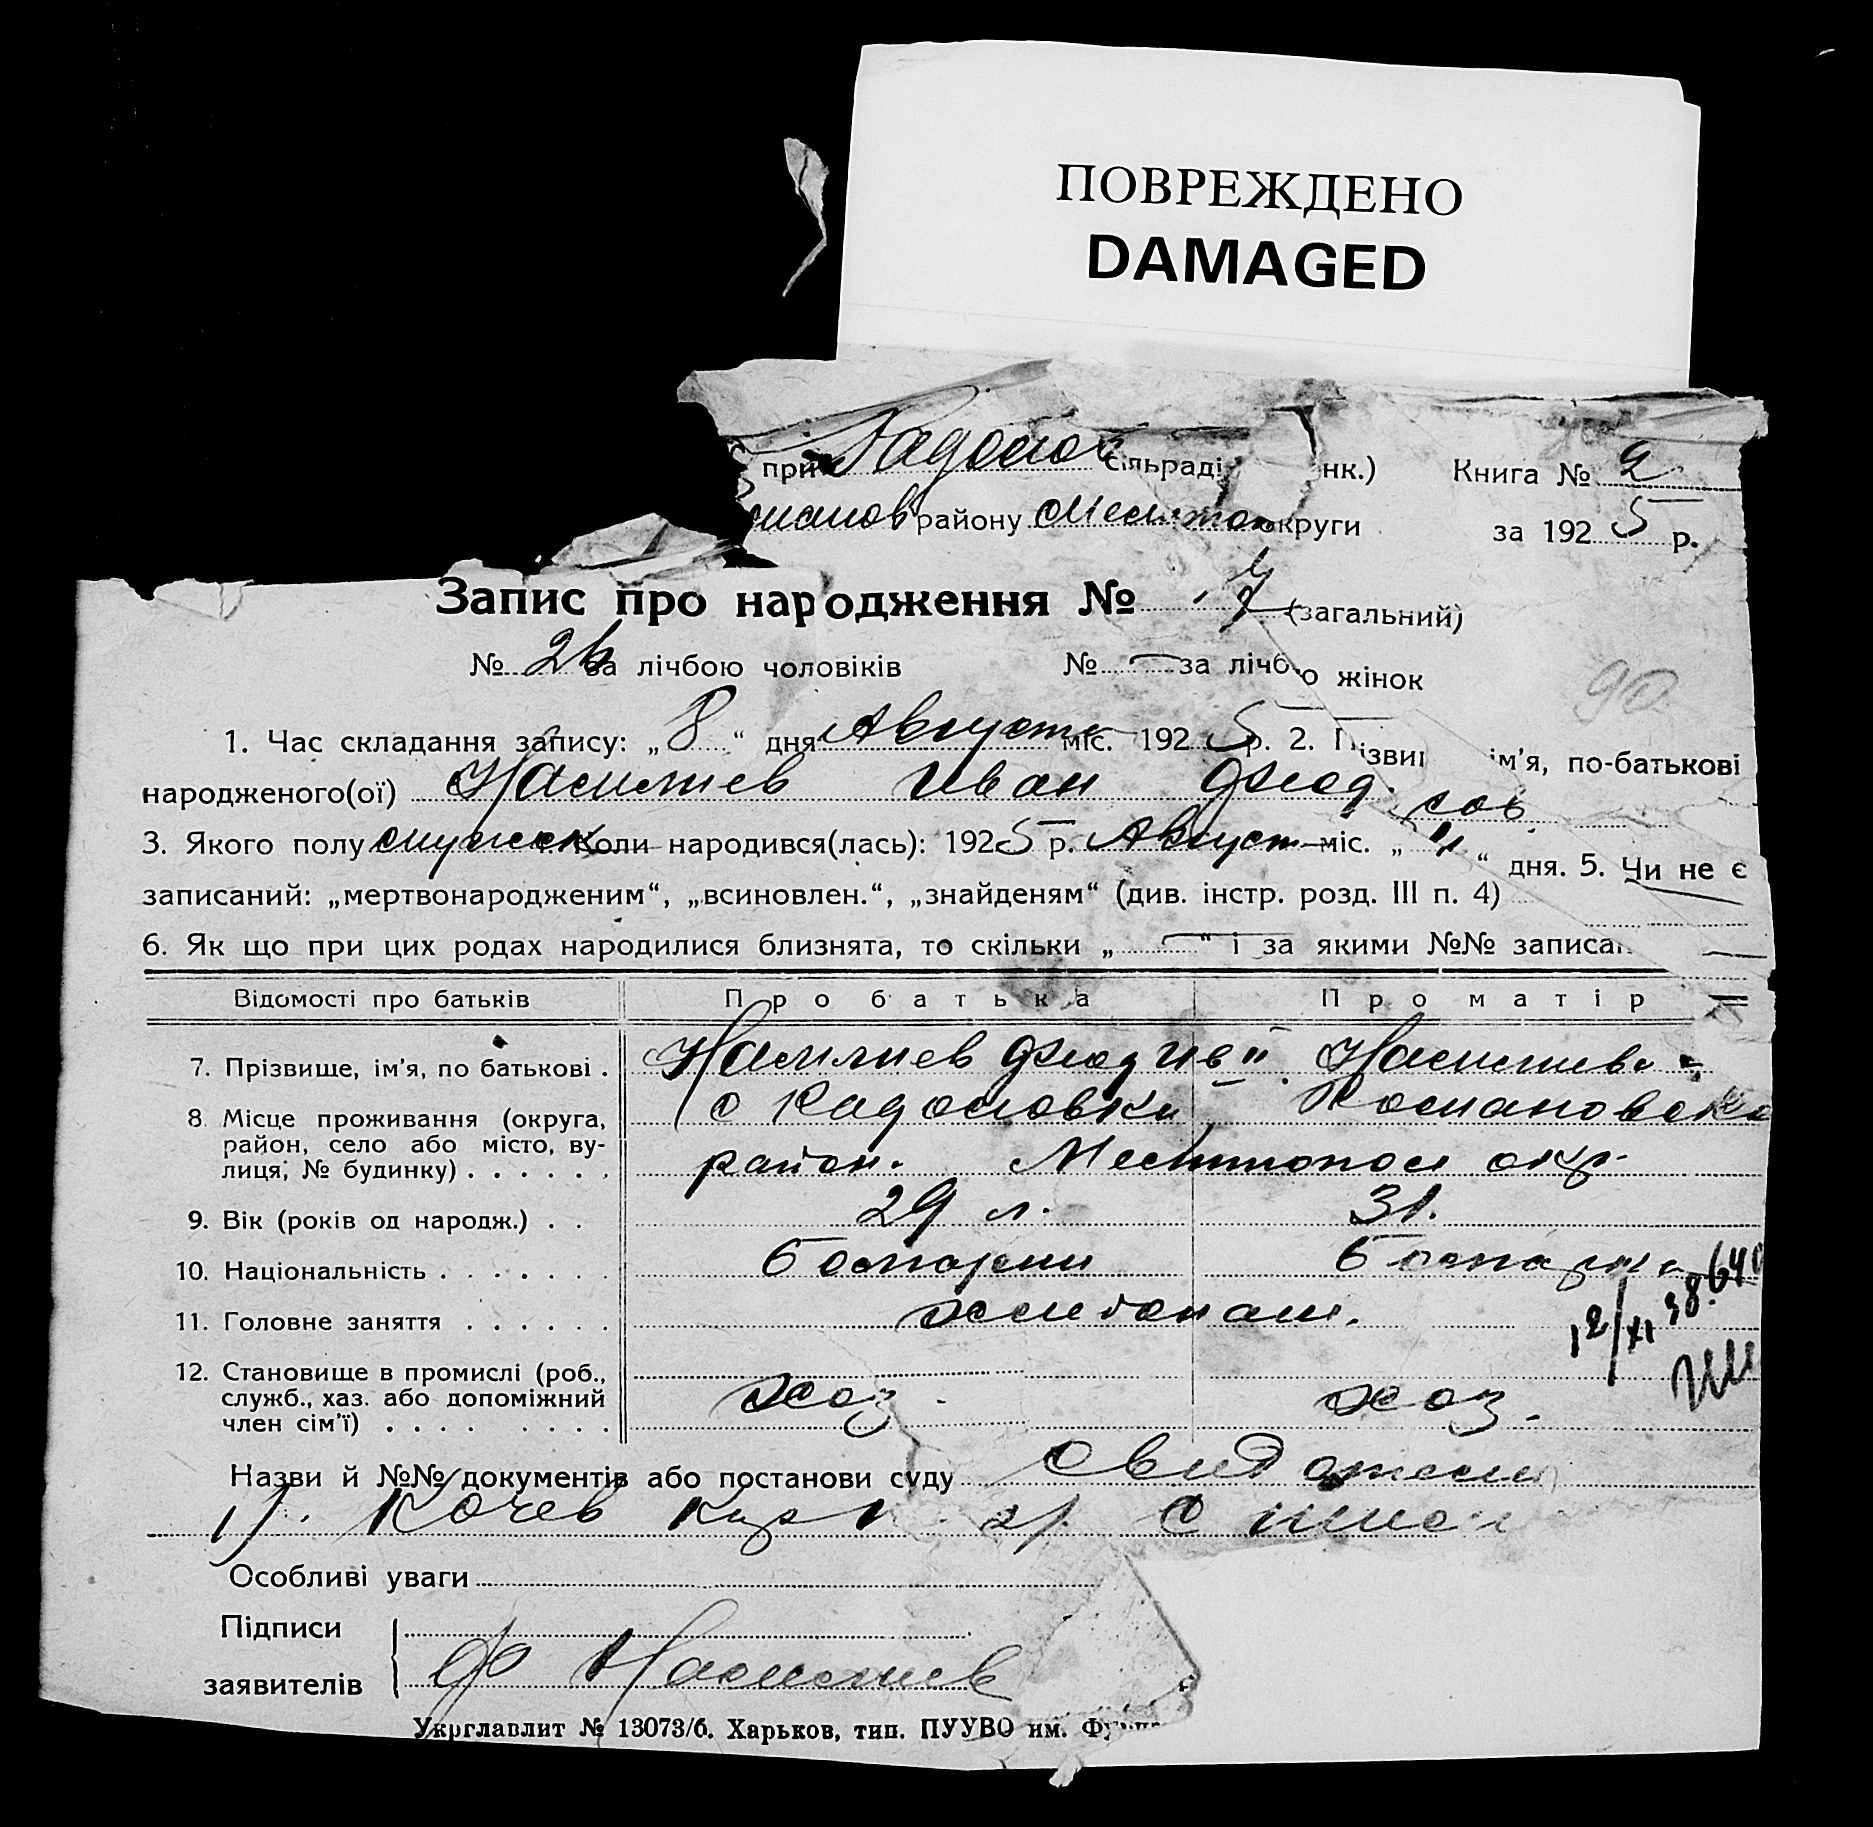 ПОВРЕЖДЕНО
DAMAGED
при сільраді нк.) Книга № 2
району округи за 1925 р.
Запис про народження № (загальний)
№ 26 за лічбою чоловіків № — за лічбою жінок
90
1. Час складання запису: „8“ дня Августа міс. 1925 р. 2. Прізвище ім'я, по-батькові
народженого(ої) Иван Феод.
3. Якого полу мужск Коли народився(лась): 1925 р. Август міс. „ “ дня. 5. Чи не є
записаний: „мертвонародженим“, „всиновлен.“, „знайденям“ (див. інстр. розд. III п. 4)
6. Як що при цих родах народилися близнята, то скільки „—“ і за якими №№ записан
Відомості про батьків Про батька Про матір
7. Прізвище, ім'я, по батькові .
8. Місце проживання (округа,
район, село або місто, ву-
лиця; № будинку) . . . . . . район. Мелитопол окр.
9. Вік (років од народж.) . . 29 л. 31.
10. Національність . . . . . . . Болгарин Болгарка
11. Головне заняття . . . . . .
12/XI 38
12. Становище в промислі (роб.,
служб., хаз. або допоміжний
член сім'ї) . . . . . . . . хоз. хоз.
Назви й №№ документів або постанови суду Свидетели
1). Кочев 2).
Особливі уваги
Підписи
заявителів Ф
Укрглавлит № 13073/б. Харьков, тип. ПУУВО им.